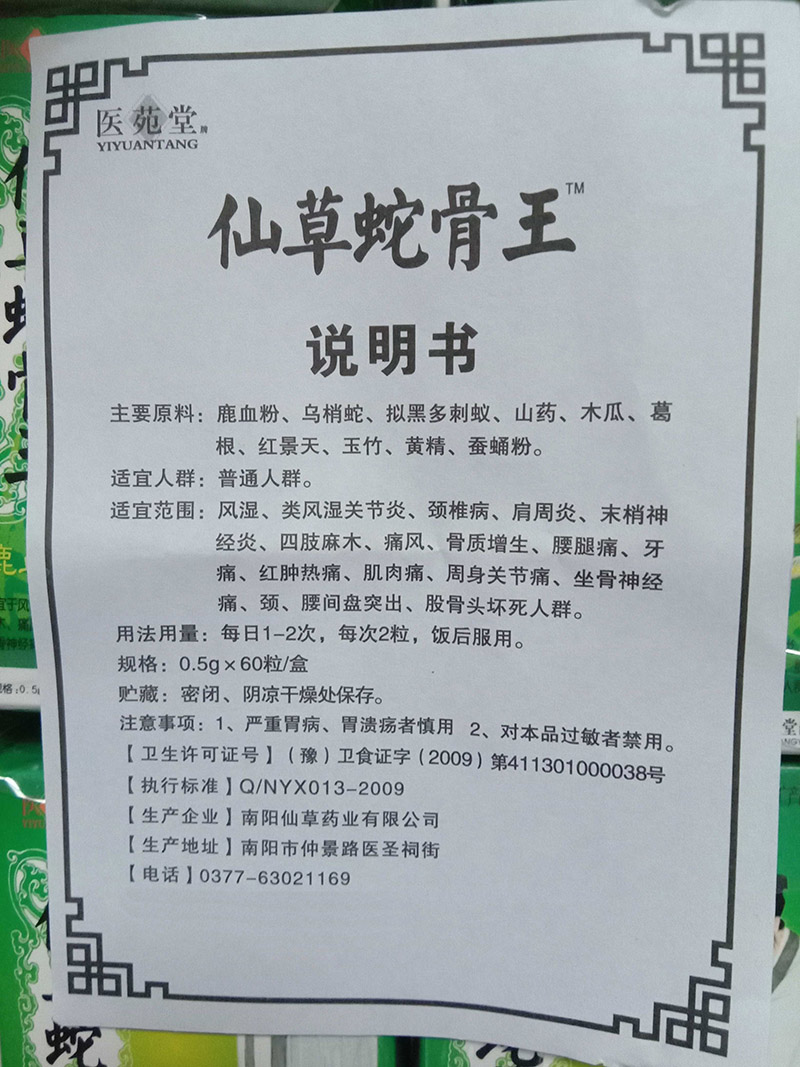 医苑堂牌
YIYUANTANG
仙草蛇骨王™
说明书
主要原料：鹿血粉、乌梢蛇、拟黑多刺蚁、山药、木瓜、葛
根、红景天、玉竹、黄精、蚕蛹粉。
适宜人群：普通人群。
适宜范围：风湿、类风湿关节炎、颈椎病、肩周炎、末梢神
经炎、四肢麻木、痛风、骨质增生、腰腿痛、牙
痛、红肿热痛、肌肉痛、周身关节痛、坐骨神经
痛、颈、腰间盘突出、股骨头坏死人群。
用法用量：每日1-2次，每次2粒，饭后服用。
规格：0.5g×60粒/盒
贮藏：密闭、阴凉干燥处保存。
注意事项：1、严重胃病、胃溃疡者慎用 2、对本品过敏者禁用。
【卫生许可证号】（豫）卫食证字（2009）第411301000038号
【执行标准】Q/NYX013-2009
【生产企业】南阳仙草药业有限公司
【生产地址】南阳市仲景路医圣祠街
【电话】0377-63021169